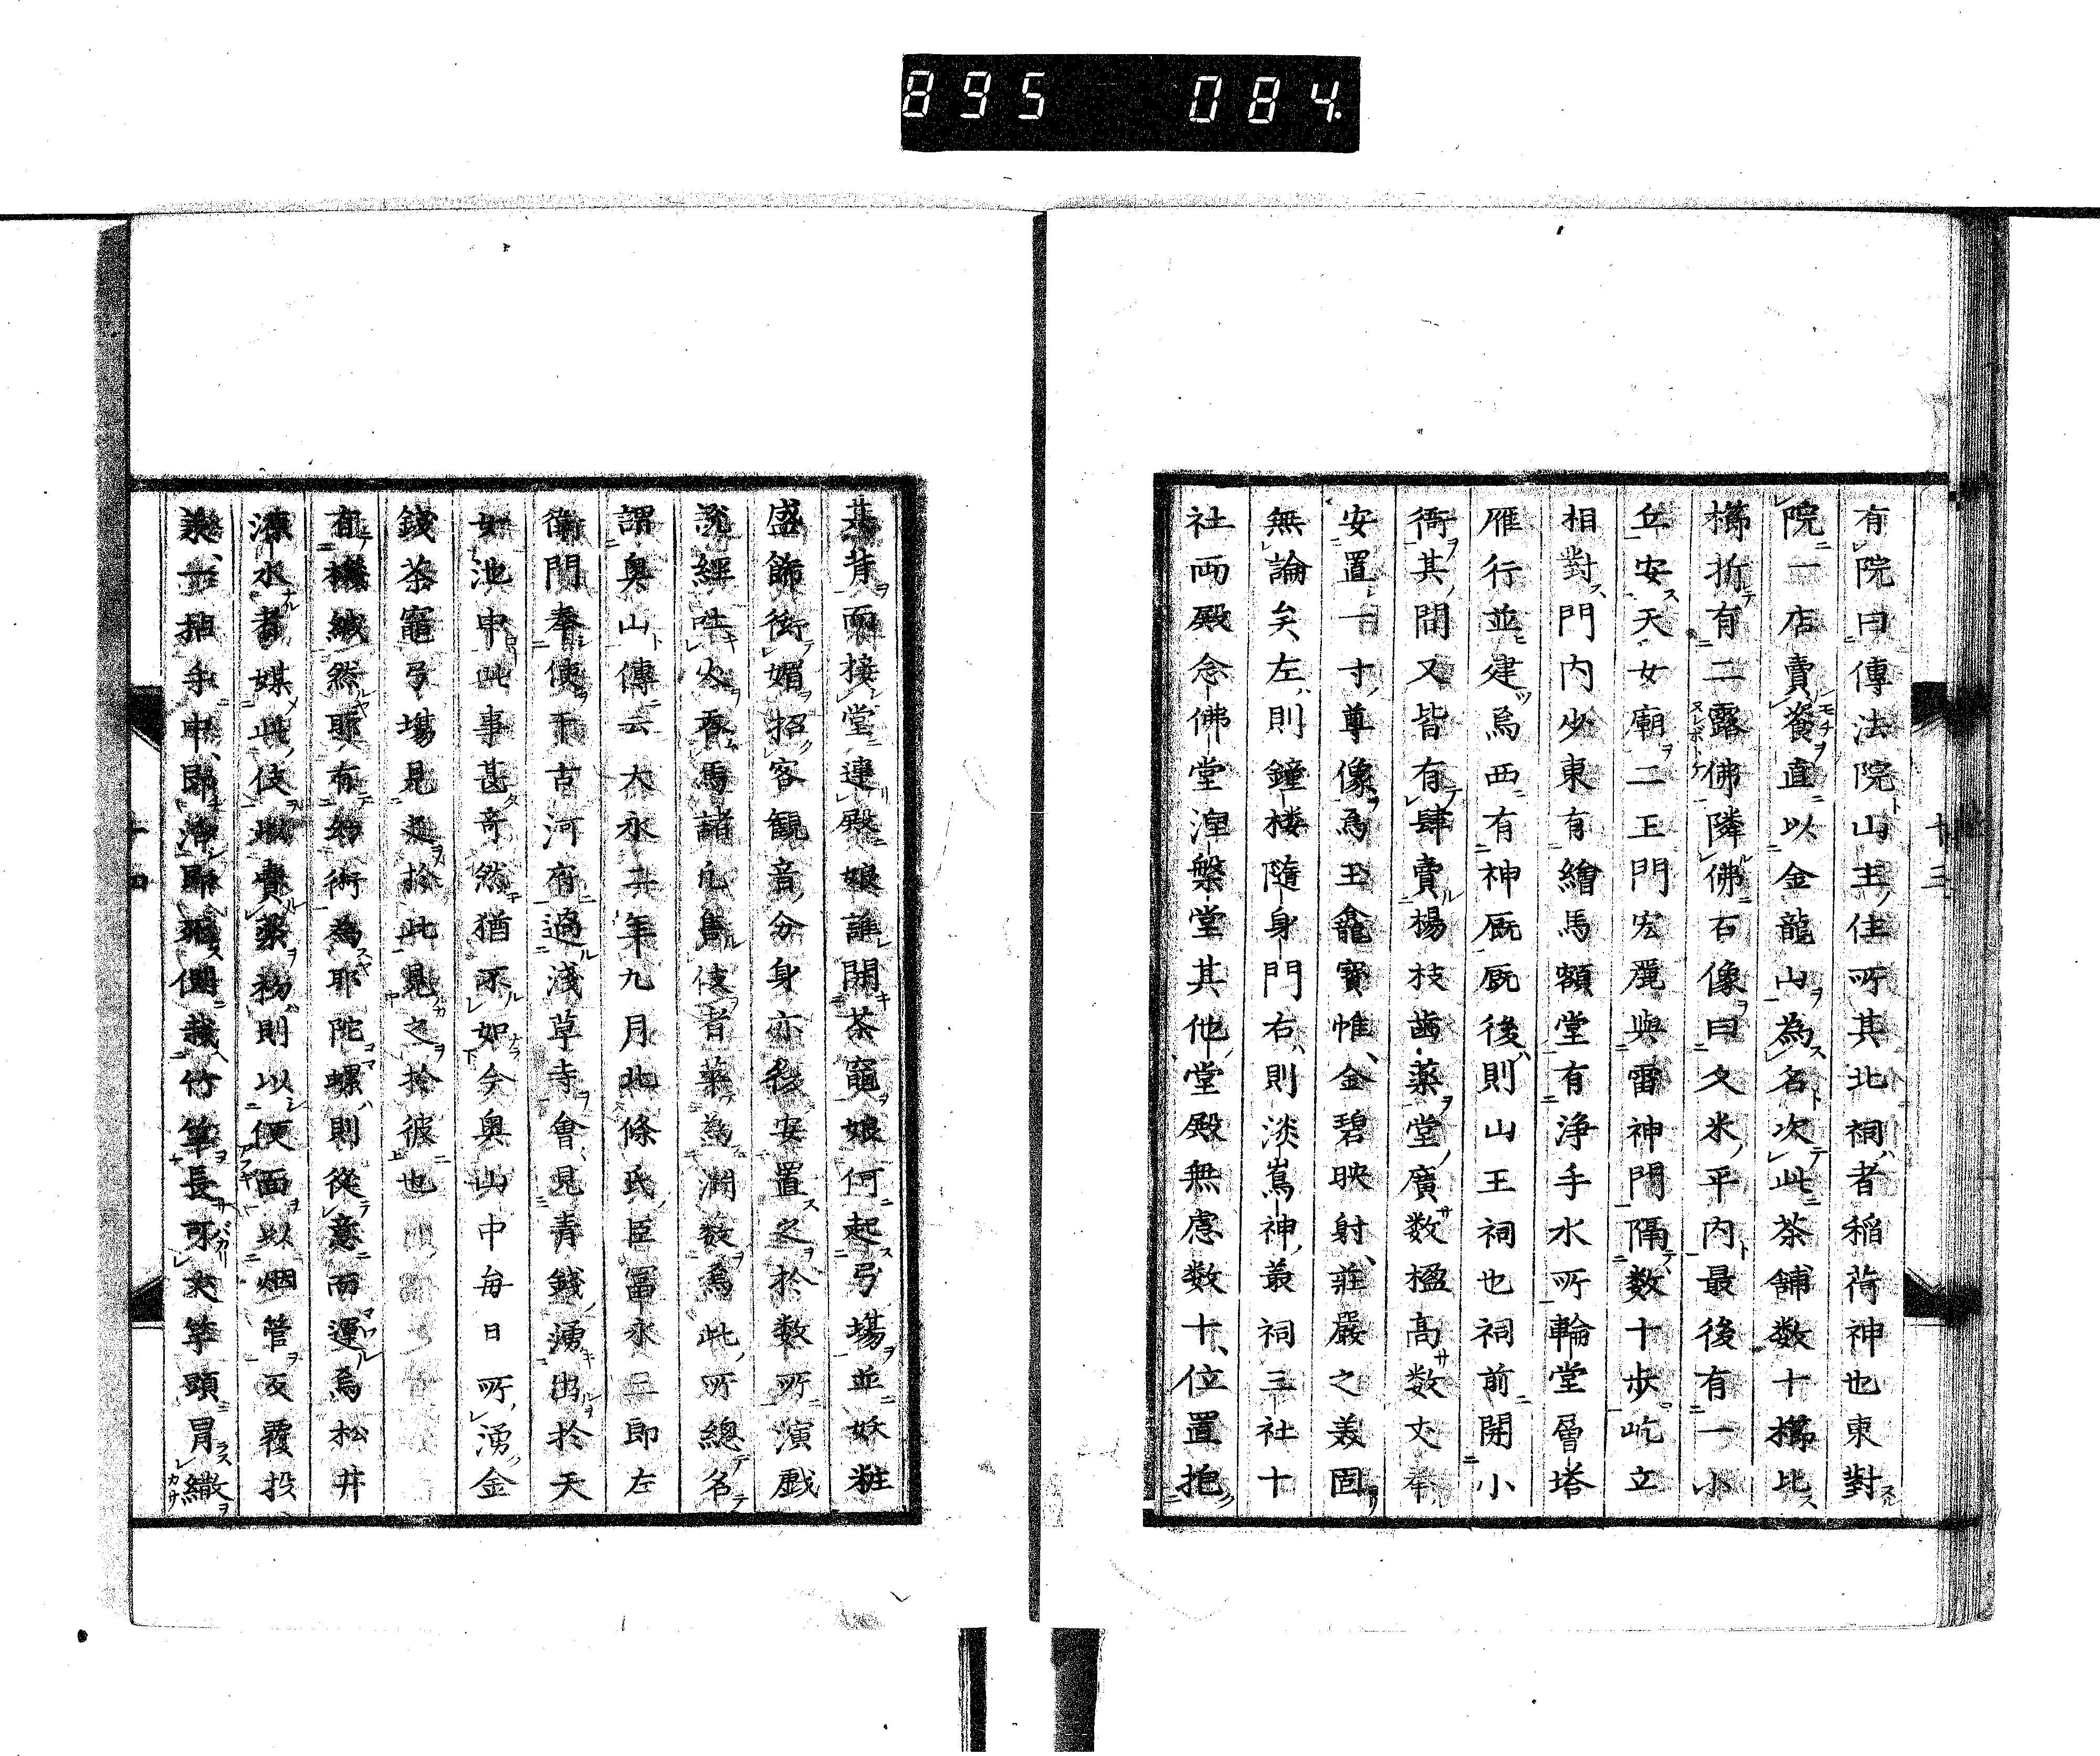 895 084
十三
有院曰傳法院山主住所其北祠者稲荷神也東對
院一店賣餈直以金龍山為名次此茶舖数十櫛比
櫛折有二露佛隣佛石像曰久米平内最後有一小
丘安天女廟二王門宏麗與雷神門隔数十歩屹立
相對門内少東有繪馬額堂有浄手水所輪堂層塔
雁行並建焉西有神厩厩後則山王祠也祠前開小
衙其間又皆有肆賣楊枝歯薬堂廣数楹高数丈奉
安置一寸尊像為玉龕寳帷金碧映射荘嚴之美固
無論矣左則鐘楼隨身門右則淡嶌神叢祠三社十
社両殿念佛堂涅槃堂其他堂殿無慮数十位置抱
其背而接堂連殿娘誰開茶竈娘何起弓場並妖粧
盛飾衒媚招客観音分身亦後安置之於数所演戯
説經吐火呑馬諸凡鬻伎者築為瀾数焉此所總名
謂奥山傳云大永其年九月北條氏臣冨永三郎左
衛門奉使于古河有過淺草寺會見青錢湧出於天
女池中此事甚奇然猶不如今奥山中毎日所湧金
錢茶竈弓場見
於此見之於彼也
有機緘然耶有幻術為耶陀螺則從意而運焉松井
源水者媒此伎鬻賣薬物則以便面以烟管反覆投
一拈手中即
竹竿長可丈竿頭冐繖
十四